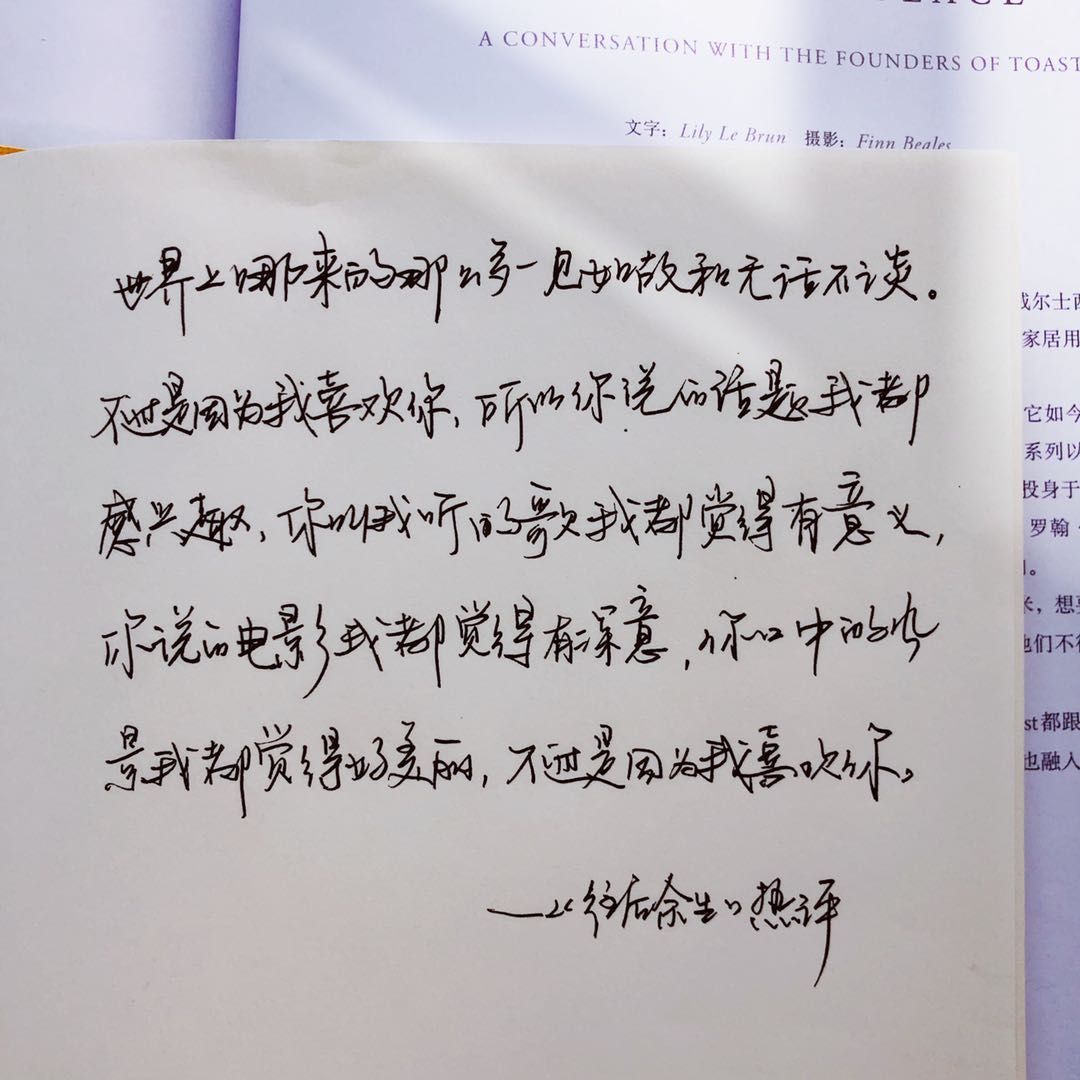 A CONVERSATION WITH THE FOUNDERS OF TOAST
文字：Lily Le Brun 摄影：Finn Beales
世界上哪来的那么多一见如故和无话不谈。
不过是因为我喜欢你，所以你说的话题我都
感兴趣，你叫我听的歌我都觉得有意义，
你说的电影我都觉得有深意，你口中的风
景我都觉得好美丽，不过是因为我喜欢你。
——《往后余生》热评
威尔士西
家居用
它如今
系列以
投身于
罗翰
米，想
他们不得
st都跟
也融入